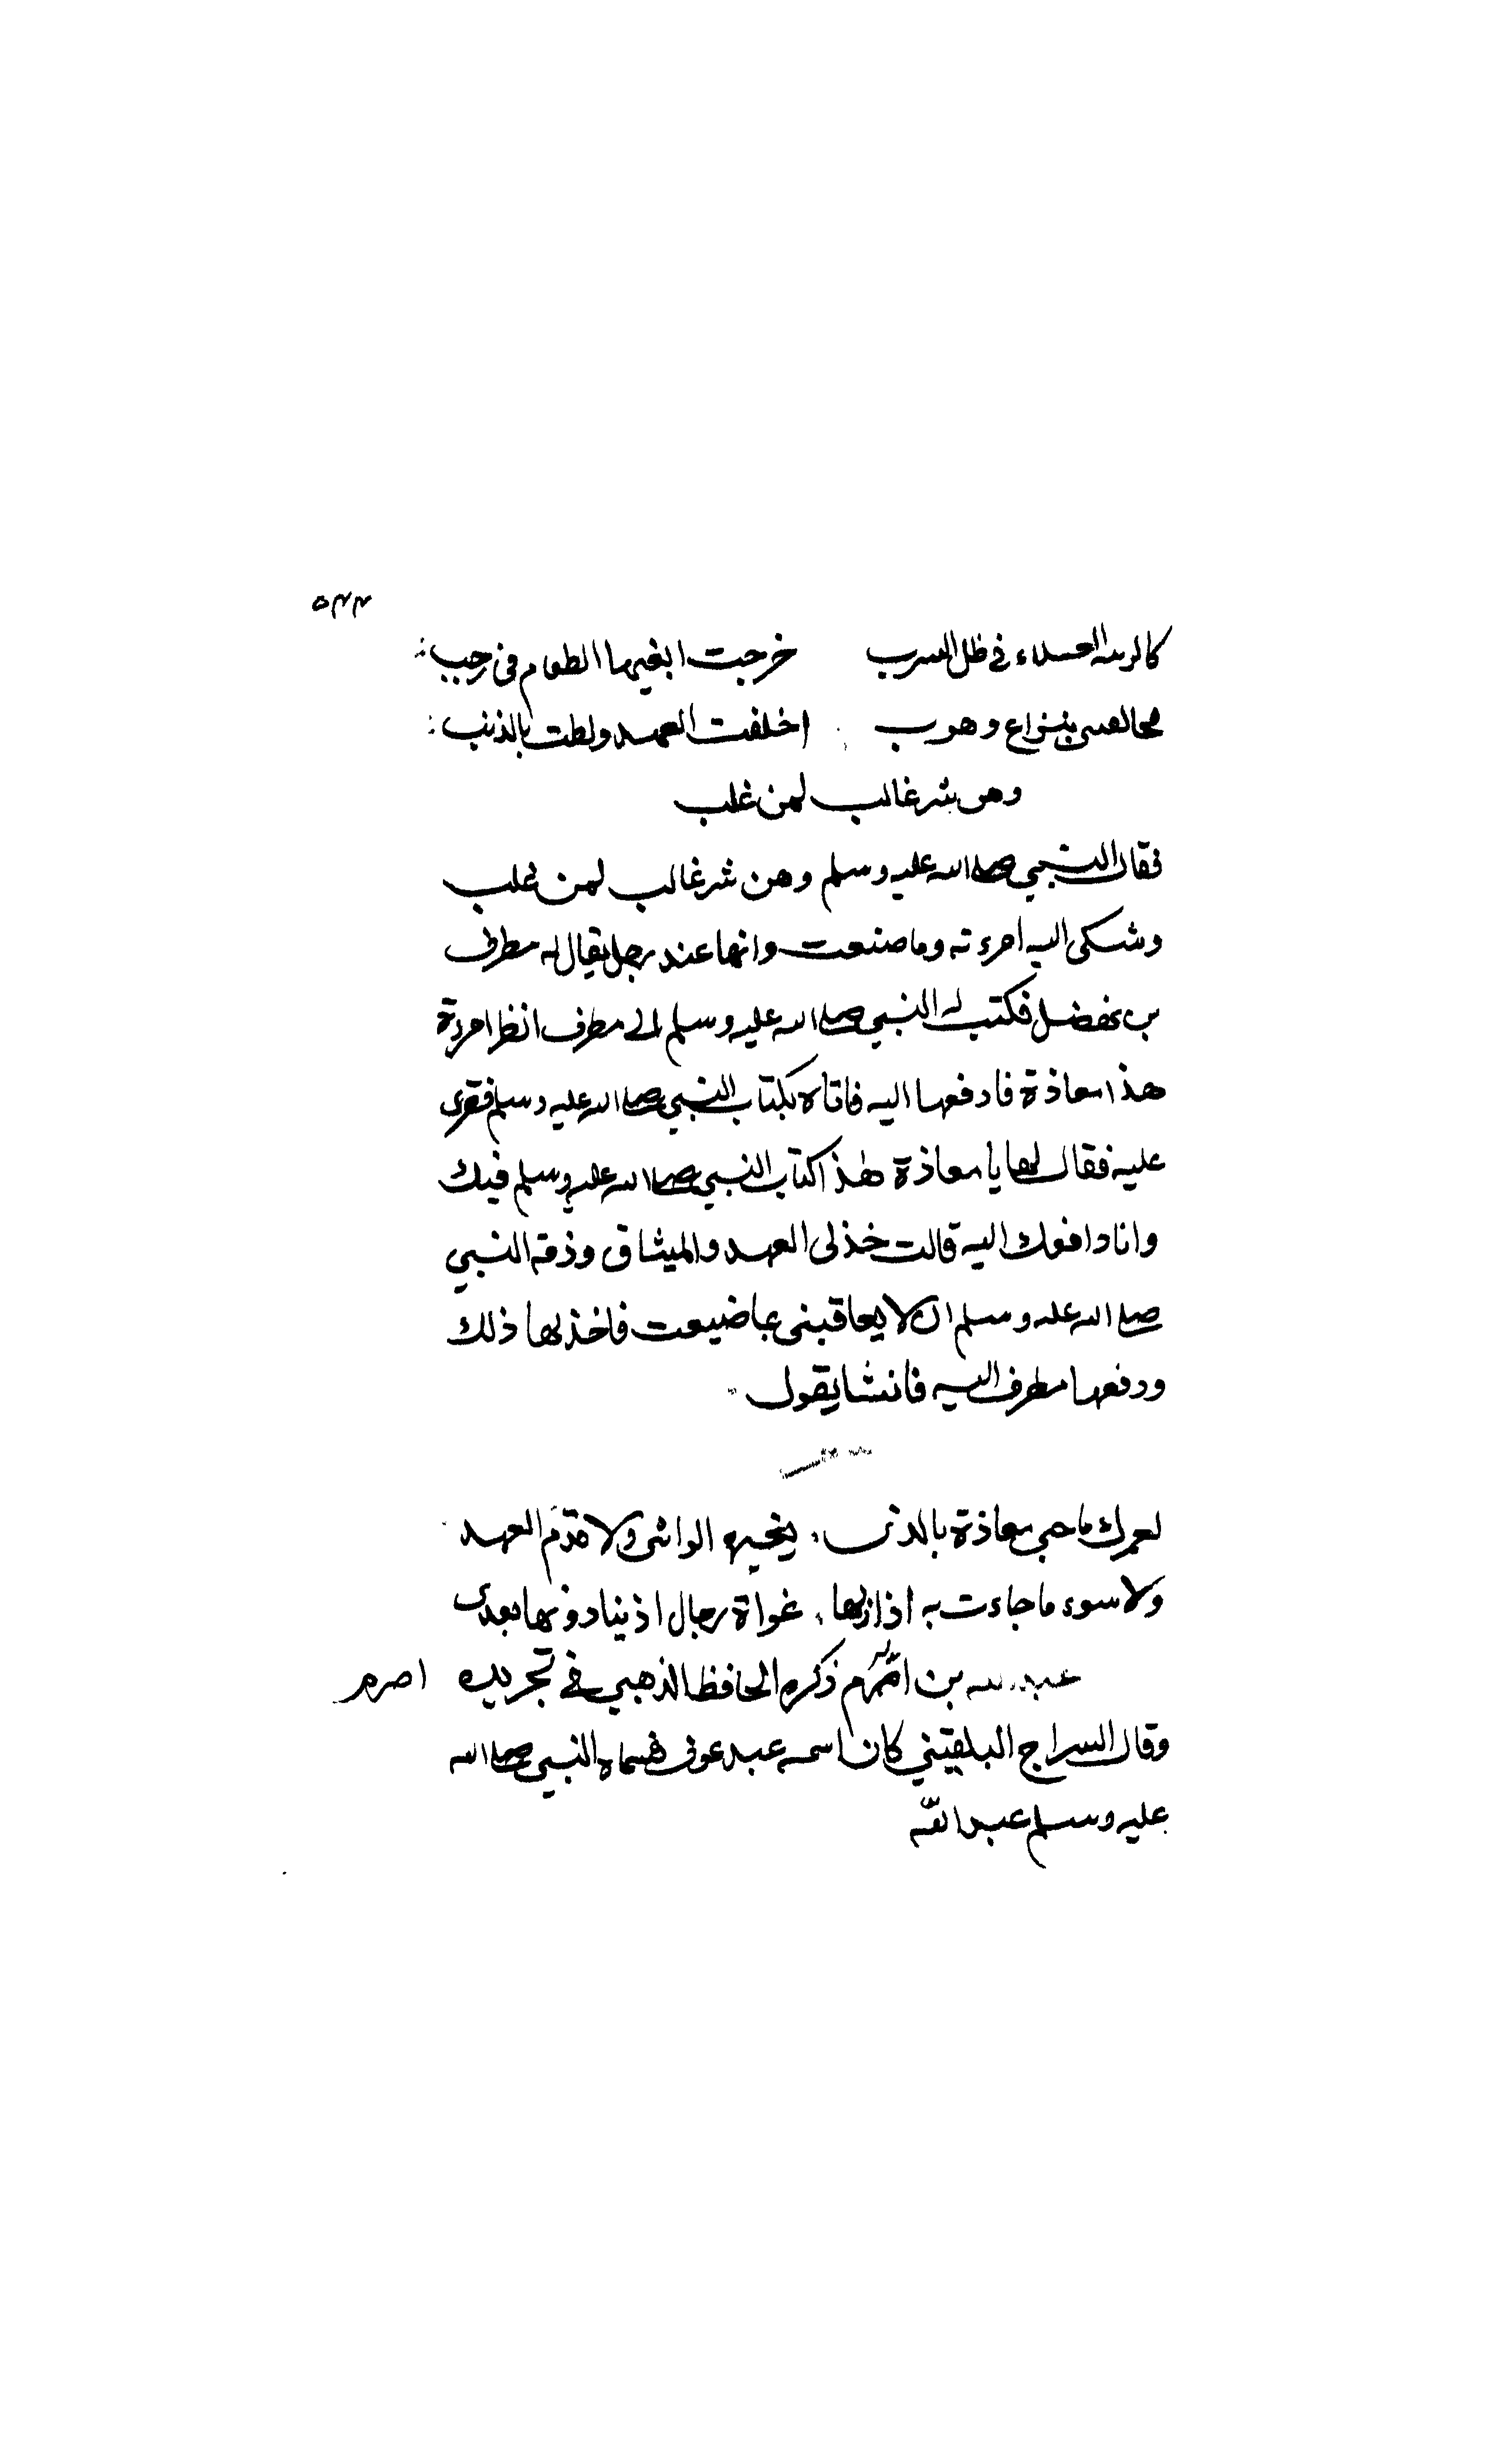 ٥٤٤
في ظل السرب خرجت ابغيها الطعام في رجب
بنزاع وهرب اخلفت العهد ولطت بالذنب
وهن شر غالب لمن غلب
فقال النبي صلى الله عليه وسلم وهن شر غالب لمن غلب
وشكى اليه امرءته وما صنعت وانها عند رجل يقال له مطرف
بن فكتب له النبي صلى الله عليه وسلم الى مطرف انظر امرءة
هذا معاذة فادفعها اليه فاتاه بكتاب النبي صلى الله عليه وسلم فقرى
عليه فقال لها يا معاذة هذا كتاب النبي صلى الله عليه وسلم فيك
وانا دافعك اليه قالت خذ لى العهد والميثاق وذمة النبي
صلى الله عليه وسلم ان لا يعاقبنى بما ضيعت فاخذ لها ذلك
ودفعها مطرف اليه فانشا يقول
لعمرك ما حبي معاذة بالذى الواشى ولا قدم العهد
ولا سوء ما جاءت به اذ ازلها غواة رجال اذ بعدى
عبد الله بن ذكره الحافظ الذهبي في تجريده اصرم
وقال السراج البلقيني كان اسمه عبد عوف فسماه النبي صلى الله
عليه وسلم عبد الله